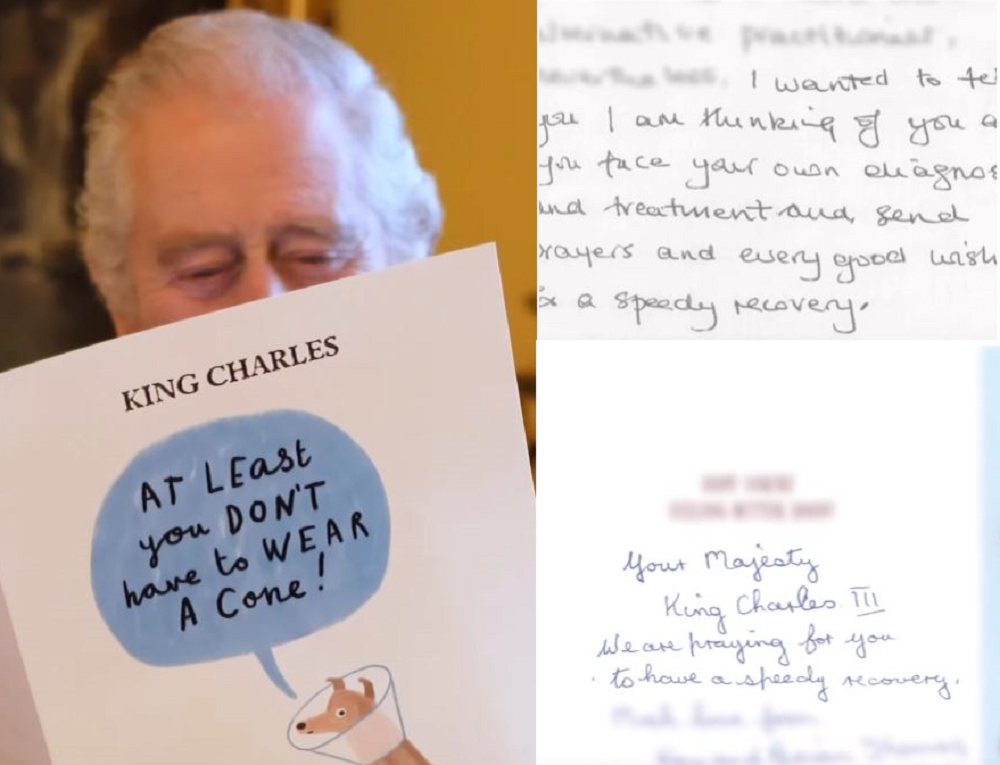 KING CHARLES
AT LEast
you DON'T
have to WEAR
A Cone!
alternative practitioner,
nevertheless, I wanted to tel
you I am thinking of you a
you face your own diagnos
and treatment and, send
rayers and every good wish
a speedy recovery.
Your Majesty
King Charles III
We are praying for you
to have a speedy recovery.
Much love from